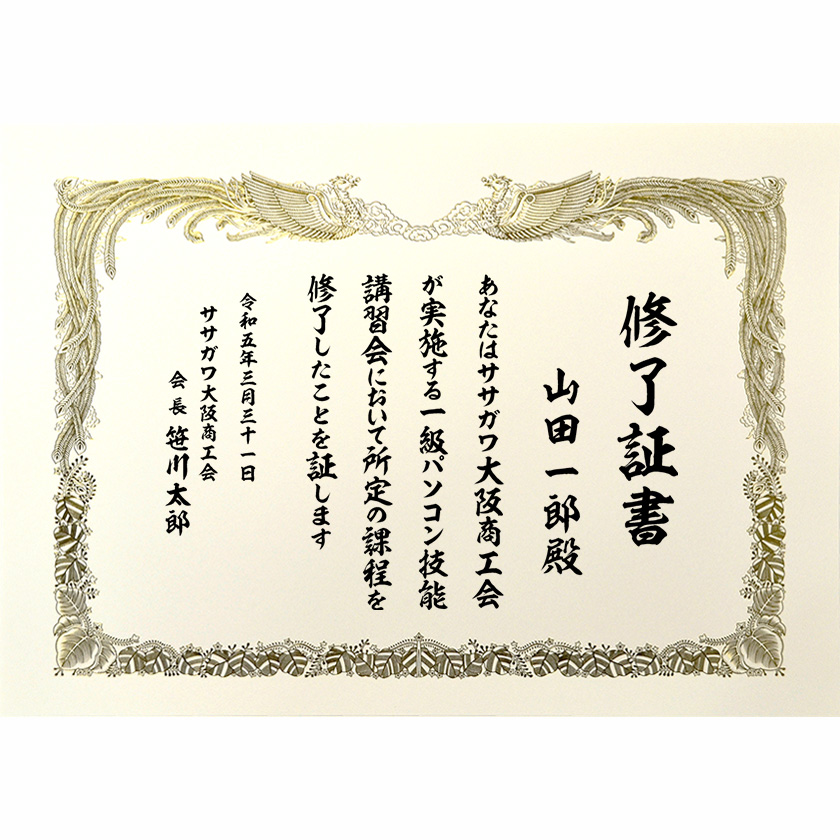 修了証書
山田一郎殿
あなたはササガワ大阪商工会
が実施する一級パソコン技能
講習会において所定の課程を
修了したことを証します
令和五年三月三十一日
ササガワ大阪商工会
会長 笹川太郎